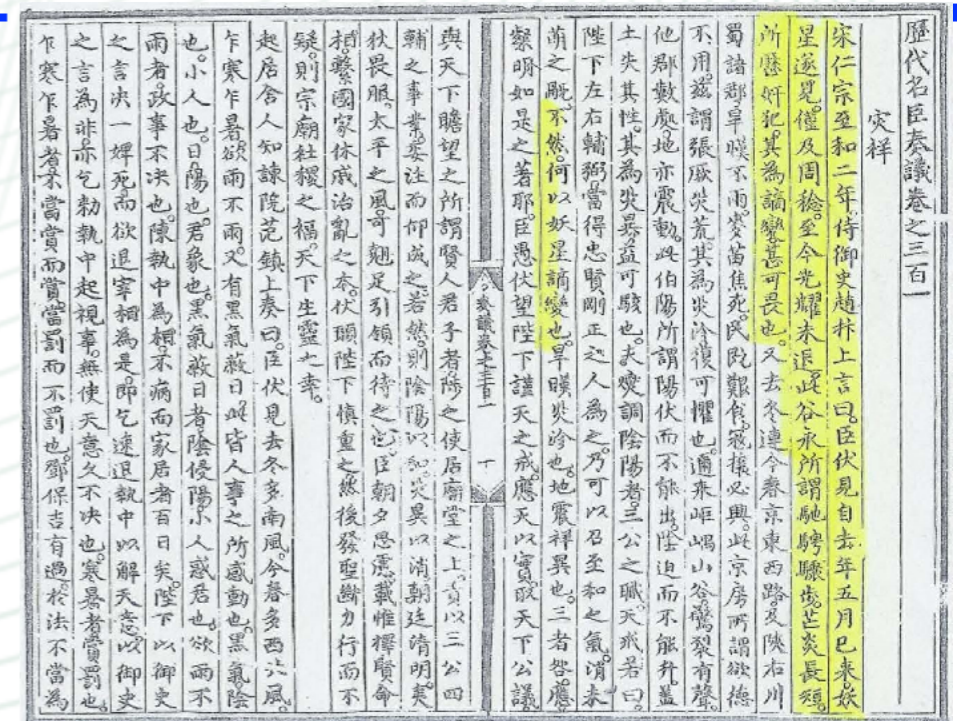 歷代名臣奏議卷之三百一
災祥
宋仁宗至和二年。侍御史趙抃上言曰。臣伏見自去年五月已來。妖
星遂見。僅及周稔。至今光耀未退。此谷永所謂馳騁驟步。芒炎長短。
所歷奸犯。其為謫變甚可畏也。又去冬連今春京東西路及陝右川
蜀諸郡旱暵不雨。麥苗焦死。民既艱食。冦攘必興。此京房所謂欲德
不用。茲謂張。厥災荒。其為災沴復可懼也。邇來岠嵎山谷裂有聲。
他郡數處。地亦震動。此伯陽所謂陽伏而不能出。陰迫而不能升。蓋
土失其性。其為災暴益可駭也。夫燮調陰陽者。三公之職。天戒若曰。
陛下左右輔弼。當得忠賢剛正之人為之。乃可以召至和之氣。消未
萌之。不然。何以妖星謫變也。旱暵災沴也。地震祥異也。三者咎應。
察明如是之著耶。臣愚伏望陛下謹天之戒。應天以實。取天下公議
奏議卷之三百一
十
與天下瞻望之所謂賢人君子者。陟之使居廟堂之上。責以三公四
輔之事業。委注而仰成之。若然。則陰陽以和。災異以消。朝廷清明。夷
狄畏服。太平之風。可翹足引領而待之也。臣朝夕思慮。載惟擇賢命
相。繫國家休戚治亂之本。伏願陛下慎重之。然後發聖斷力行而不
疑。則宗廟社稷之福。天下生靈之幸。
起居舍人知諫院范鎮上奏曰。臣伏見去冬多南風。今春多西北風。
乍寒乍暑。欲雨不雨。又有黑氣蔽日。此皆人事之所感動也。黑氣陰
也。小人也。日陽也。君象也。黑氣蔽日者。陰侵陽。小人惑君也。欲雨不
雨者。政事不決也。陳執中為相。不病而家居者百日矣。陛下以御史
之言決一婢死。而欲退宰相為是。即乞速退執中以解天意。以御史
之言為非。亦乞勑執中起視事。無使天意久不決也。寒暑者賞罰也。
乍寒乍暑者。不當賞而賞。當罰而不罰也。鄧保吉有過。於法不當為